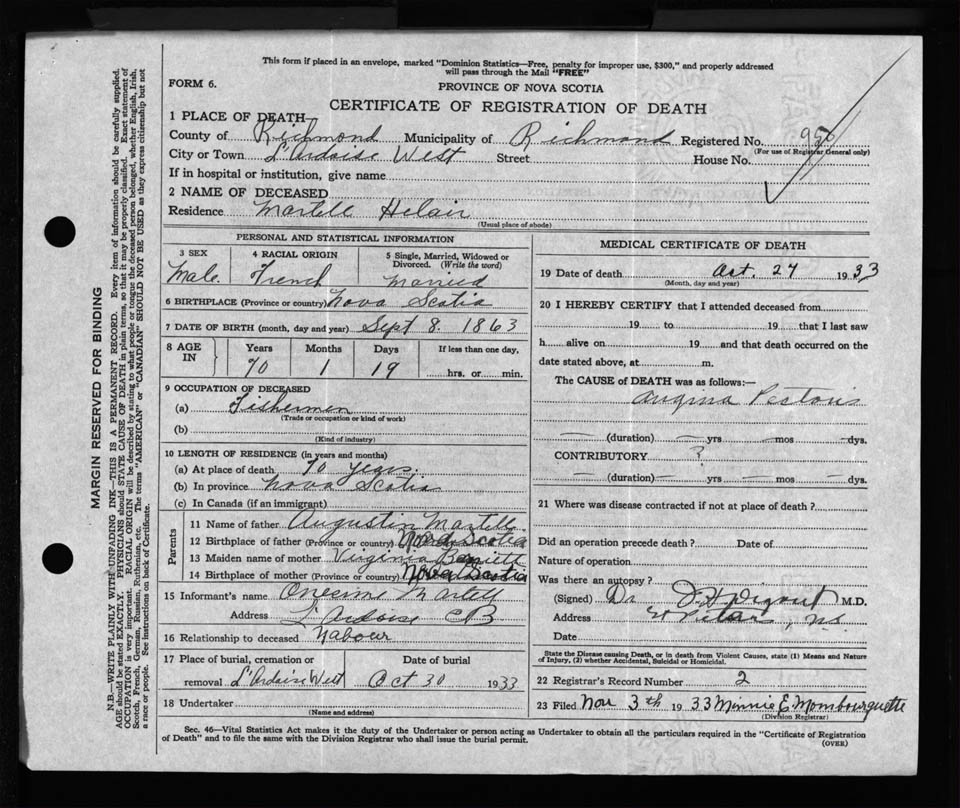 This form if placed in an envelope, marked "Dominion Statistics—Free, penalty for improper use, $300," and properly addressed
will pass through the Mail "FREE"
FORM 6.
PROVINCE OF NOVA SCOTIA
CERTIFICATE OF REGISTRATION OF DEATH
1 PLACE OF DEATH
County of Richmond Municipality of Richmond Registered No.
(For use of Registrar General only)
City or Town L'Ardoise West Street House No.
If in hospital or institution, give name
2 NAME OF DECEASED
Residence Martell Helair
(Usual place of abode)
PERSONAL AND STATISTICAL INFORMATION
3 SEX 4 RACIAL ORIGIN 5 Single, Married, Widowed or Divorced. (Write the word)
Male French Married
6 BIRTHPLACE (Province or country) Nova Scotia
7 DATE OF BIRTH (month, day and year) Sept 8. 1863
8 AGE IN Years Months Days If less than one day,
70 1 19 hrs. or min.
9 OCCUPATION OF DECEASED
(a) Fishermen
(Trade or occupation or kind of work)
(b)
(Kind of industry)
10 LENGTH OF RESIDENCE (in years and months)
(a) At place of death 70 years.
(b) In province Nova Scotia
(c) In Canada (if an immigrant)
Parents
11 Name of father Augustin Martell
12 Birthplace of father (Province or country) Nova Scotia
13 Maiden name of mother Virginia
14 Birthplace of mother (Province or country) Nova Scotia
15 Informant's name Onesime Martell
Address L'Ardoise CB
16 Relationship to deceased Nabour
17 Place of burial, cremation or removal L'Ardoise West Date of burial Oct 30 1933
18 Undertaker
(Name and address)
MEDICAL CERTIFICATE OF DEATH
19 Date of death Oct. 27 1933
(Month, day and year)
20 I HEREBY CERTIFY that I attended deceased from
19 to 19 that I last saw
h alive on 19 and that death occurred on the
date stated above, at m.
The CAUSE of DEATH was as follows:—
Angina Pectoris
— (duration) — yrs — mos — dys.
CONTRIBUTORY ?
— (duration) — yrs — mos — dys.
21 Where was disease contracted if not at place of death?
Did an operation precede death? Date of
Nature of operation
Was there an autopsy?
(Signed) Dr M.D.
Address St Peters, N.S.
Date
State the Disease causing Death, or in death from Violent Causes, state (1) Means and Nature
of Injury, (2) whether Accidental, Suicidal or Homicidal.
22 Registrar's Record Number 2
23 Filed Nov 3th 1933 Minnie E Mombourquette
(Division Registrar)
Sec. 46—Vital Statistics Act makes it the duty of the Undertaker or person acting as Undertaker to obtain all the particulars required in the "Certificate of Registration
of Death" and to file the same with the Division Registrar who shall issue the burial permit.
(OVER)
MARGIN RESERVED FOR BINDING
N.B.—WRITE PLAINLY WITH UNFADING INK—THIS IS A PERMANENT RECORD. Every item of information should be carefully supplied.
AGE should be stated EXACTLY. PHYSICIANS should STATE CAUSE OF DEATH in plain terms, so that it may be properly classified. Exact statement of
OCCUPATION is very important. RACIAL ORIGIN will be described by stating to what people or tongue the deceased person belonged, whether English, Irish,
Scotch, French, German, Russian, Ruthenian, etc. The terms "AMERICAN" or "CANADIAN" SHOULD NOT BE USED as they express citizenship but not
a race or people. See instructions on back of Certificate.